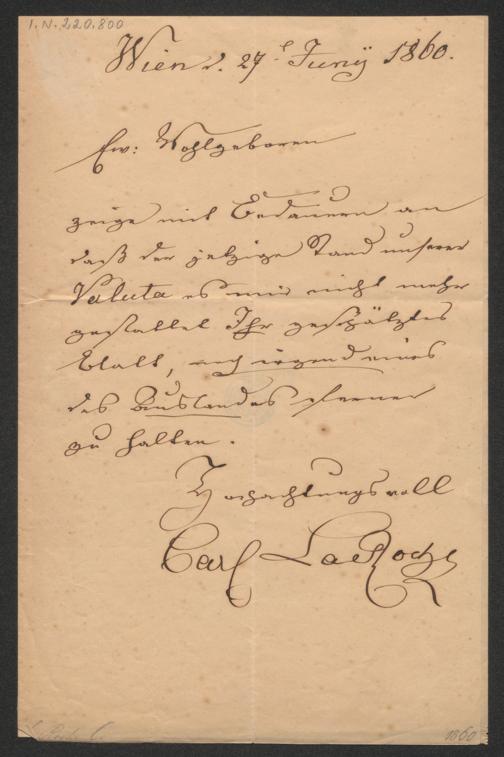 I.N. 220.800
Wien d. 27t Junÿ 1860.
Ew: Wohlgeboren
zeige mit Bedauern an
daß der jetzige Stand unserer
Valuta es mir nicht mehr
gestattet Ihr geschätztes
Blatt, noch irgend eines
des Auslandes ferner
zu halten.
Hochachtungsvoll
Carl LaRoche
1860